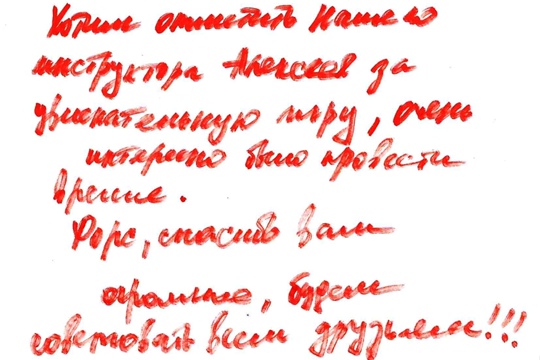 Хотим отметить нашего
инструктора Алексея за
увлекательную игру, очень
интересно было провести
время.
Форс, спасибо вам
огромные, будем
советовать всем друзьям!!!